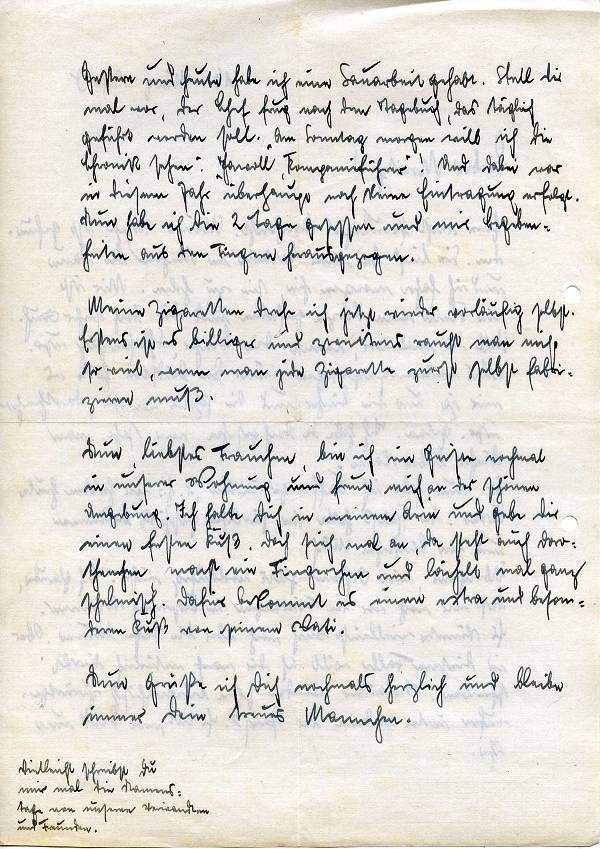 Gestern und heute habe ich eine Sauarbeit gehabt. Stell dir
mal vor, der Chef frug nach dem Tagebuch, das täglich
geführt werden soll. "Am Sonntag morgen will ich die
Chronik sehen". "Jawoll, Kompanieführer"! Und dabei war
in diesem Jahr überhaupt noch keine Eintragung erfolgt.
Nun habe ich die 2 Tage gesessen und mir Begeben-
heiten aus den Fingern herausgezogen.
Meine Zigaretten drehe ich jetzt wieder vorläufig selbst.
Erstens ist es billiger und zweitens raucht man nicht
so viel, wenn man jede Zigarette zuerst selbst fabri-
zieren muß.
Nun, liebstes Frauchen, bin ich im Geiste nochmal
in unserer Wohnung und freue mich an der schönen
Umgebung. Ich halte Dich in meinem Arm und gebe dir
einen festen Kuß. Doch sieh mal an, da steht auch Doro-
thenchen, macht ein Fingerchen und lächelt mal ganz
schelmisch. Dafür bekommt es einen extra und beson-
deren Kuß von seinem Vati.
Nun grüße ich Dich nochmals herzlich und bleibe
immer Dein treues Mannchen.
Vielleicht schreibst Du
mir mal die Namens-
tage von unseren Verwandten
und Freunden.